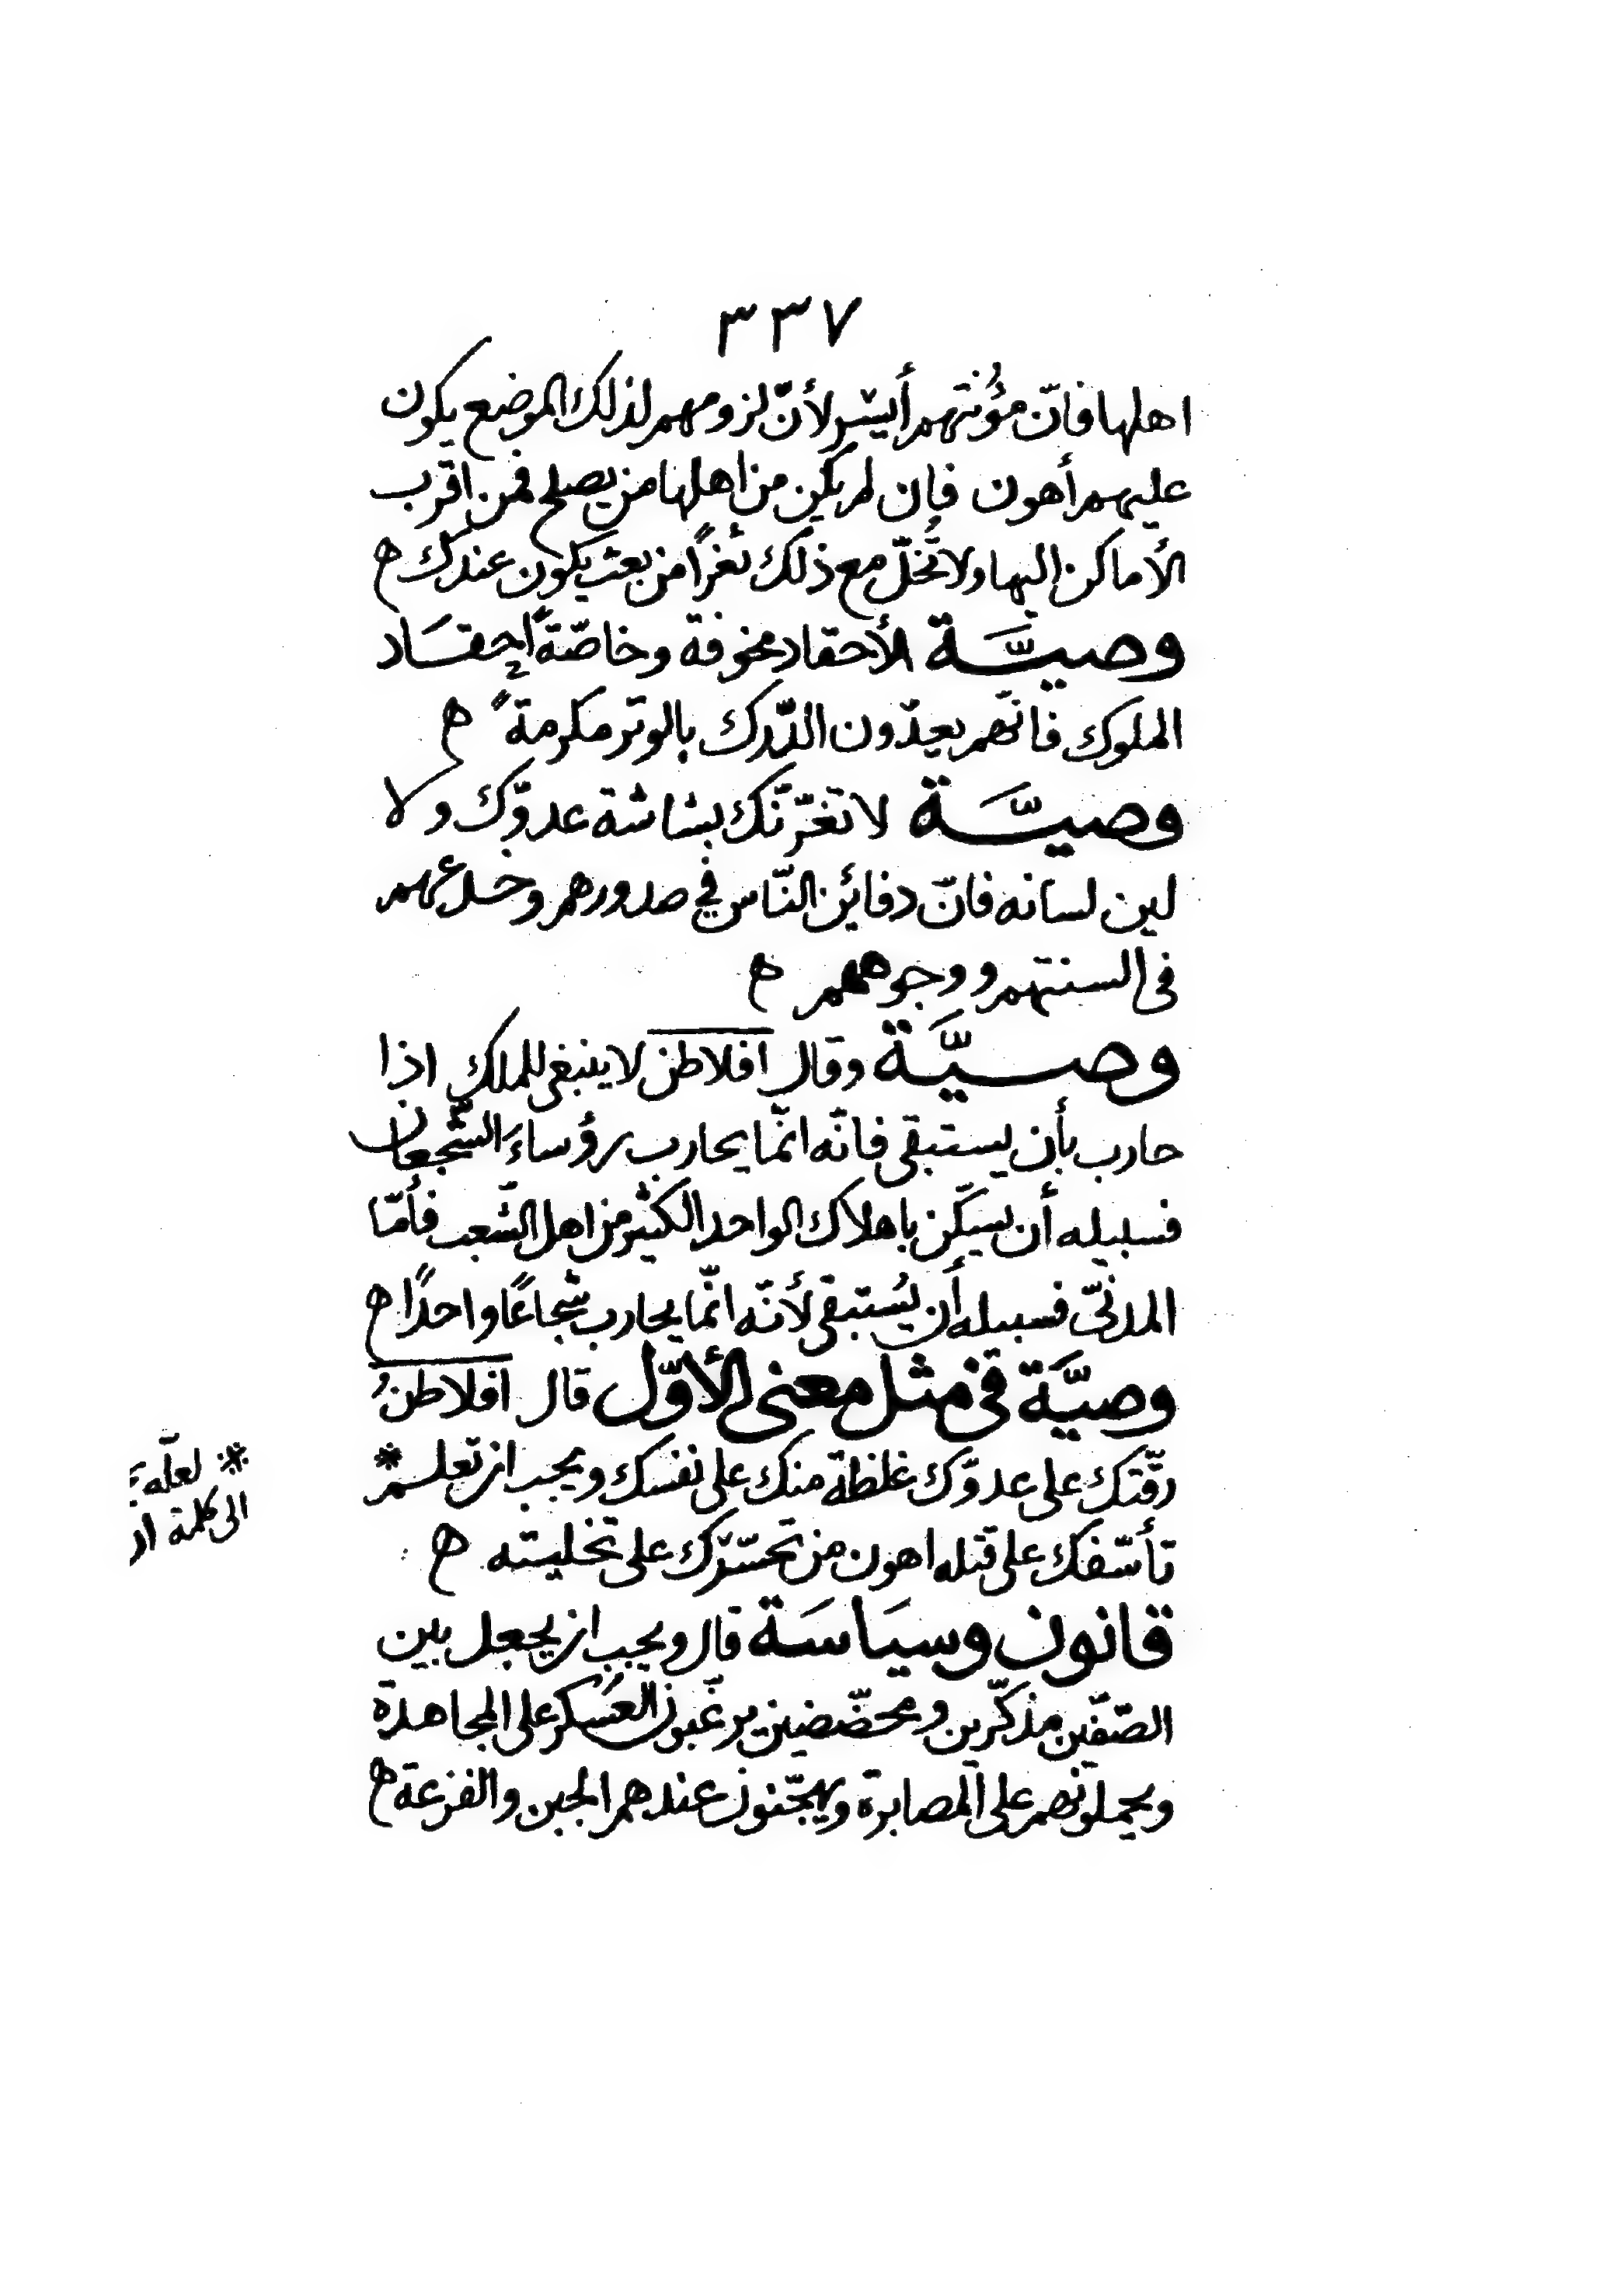 ٣٣٧
اهلها فانّ مؤُنتهم أيسر لأنّ لزومهم لذلك الموضع يكون
عليهم أهون فإن لم يكن من اهلها من يصلح فمن اقرب
الأماكن اليها ولا تُخلّ مع ذلك ثغرًا من بعث يكون عندك ه
وصيَّة الأحقاد مخوفة وخاصّةً احقَاد
الملوك فانّهم يعدّون الدّرك بالوتر مكرمةً ه
وصيَّة لا تغرّنّك بشاشة عدوّك ولا
لين لسانه فانّ دفائن النّاس في صدورهم وخدعهم
فى السنتهم ووجوههم ه
وصيَّة وقال افلاطن لا ينبغى للملك اذا
حارب بأن يستبقى فانّه انّما يحارب رؤساءَ الشّجعان
فسبيله أن يسكّن باهلاك الواحد الكثير من اهل الشّعب فأمّا
المدنىّ فسبيله أن يُستبقى لأنّه انّما يحارب شجاعًا واحدًا ه
وصيَّة فى مثل معنى الأوّل قال افلاطنُ
رقّتك على عدوّك غلظة منك على نفسك ويجب ان تعلم *
تأسّفك على قتله اهون من تحسّرك على تخليته ه
قانون وسيَاسَة قال ويجب ان يجعل بين
الصّفّين مذكّرين ومحضّضين يرغّبون العسكر على المجاهدة
ويحملونهم على المصابرة ويهجّنون عندهم الجبن والفزعة ه
* لعلّه:
الى كلمة ان